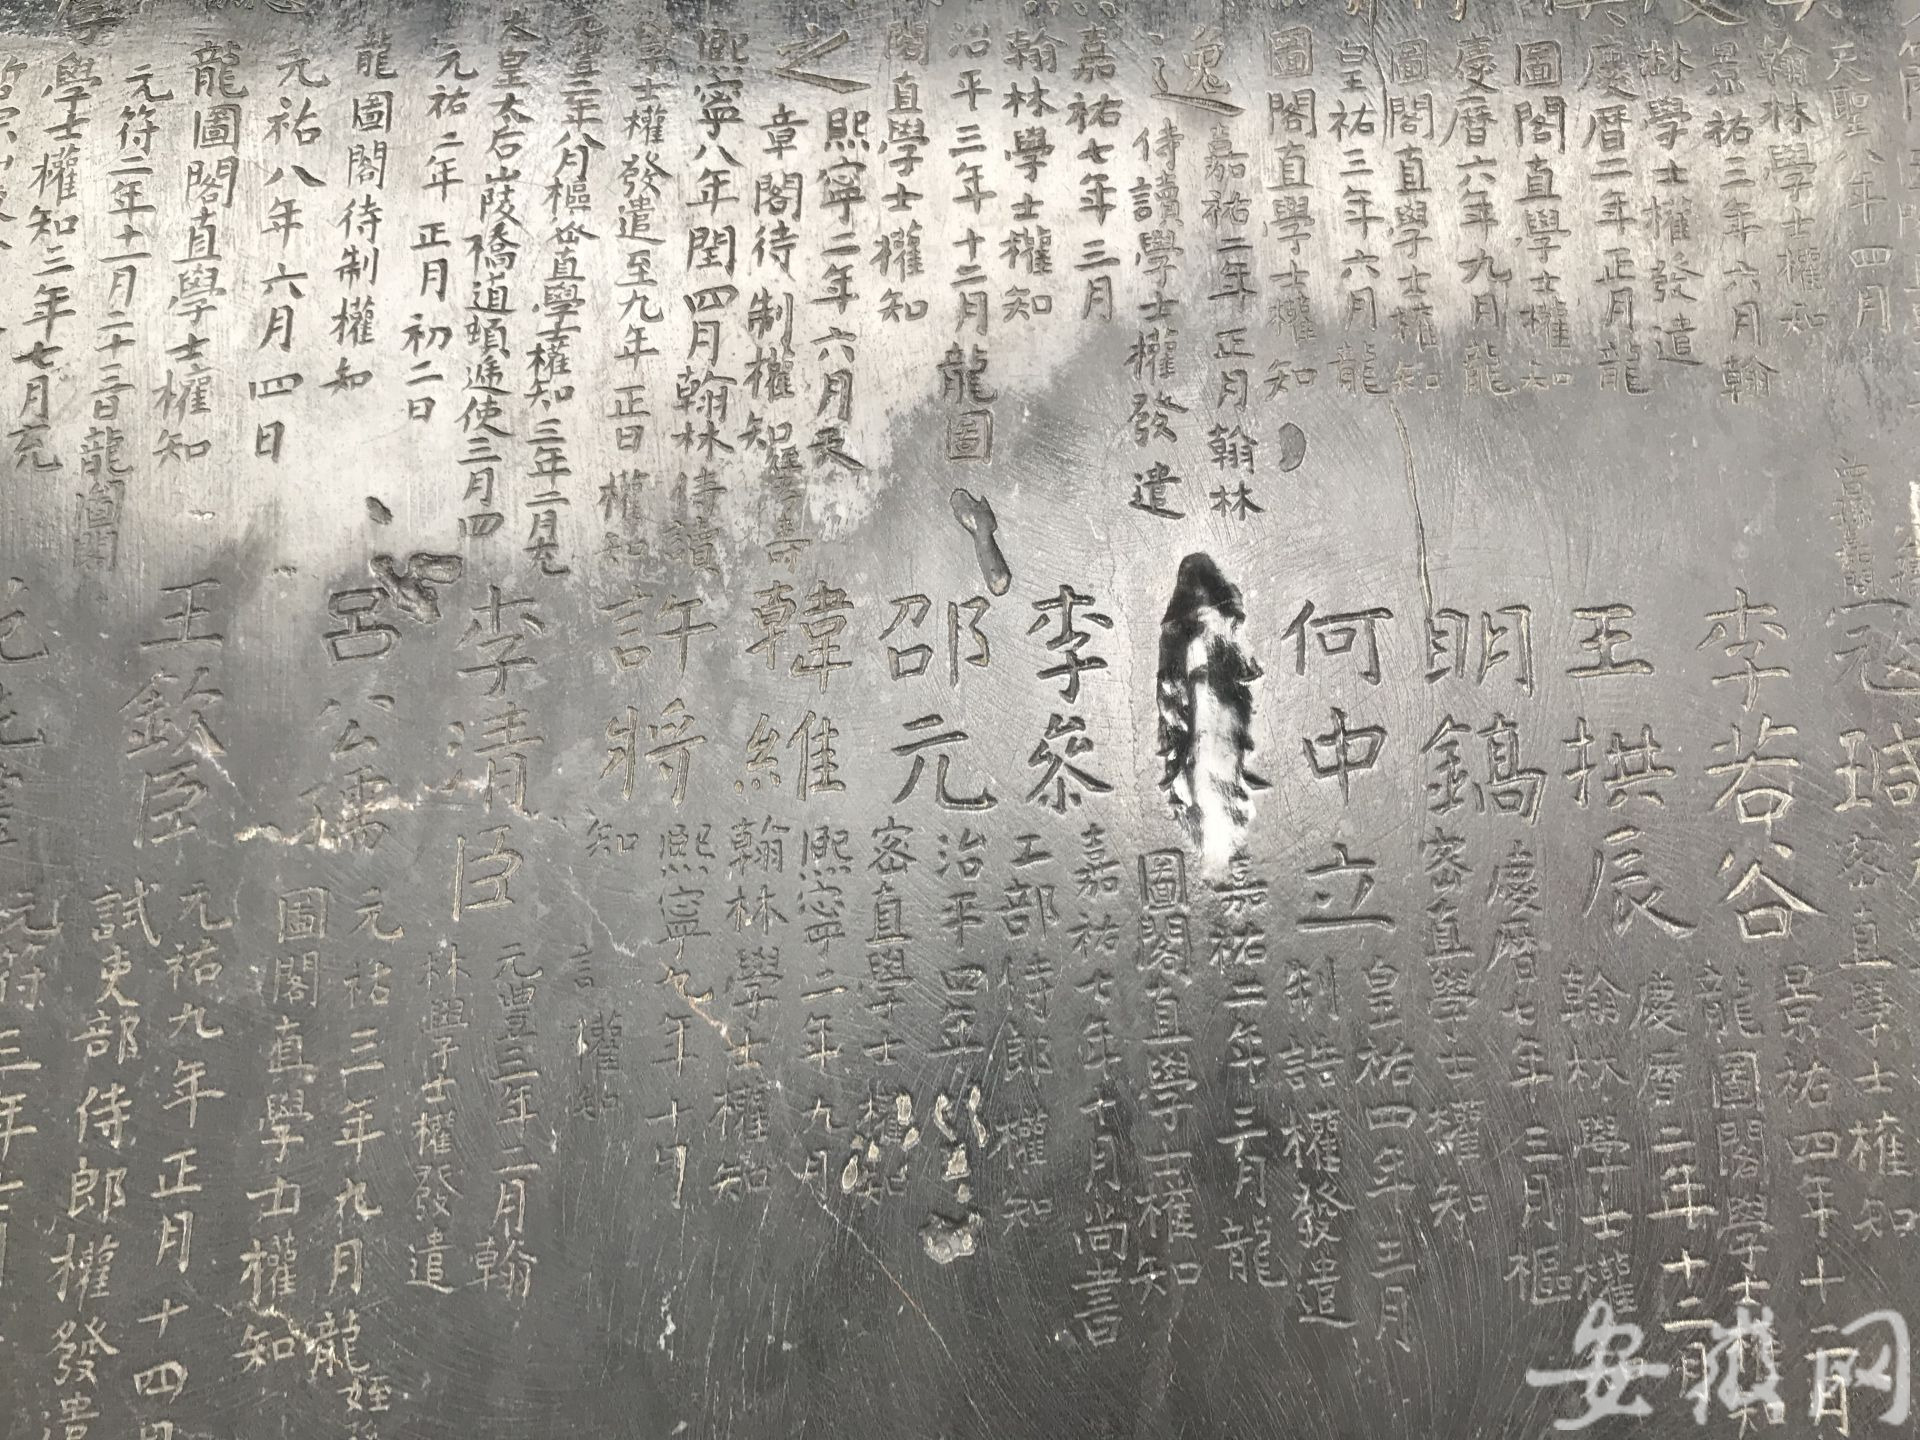 天聖八年四月
翰林學士權知
景祐三年六月翰
林學士權發遣
慶曆二年正月龍
圖閣直學士權知
慶曆六年九月龍
圖閣直學士權知
皇祐三年六月龍
圖閣直學士權知
嘉祐二年正月翰林
侍讀學士權發遣
嘉祐七年三月
翰林學士權知
治平三年十二月龍圖
閣直學士權知
之
熙寧二年六月天
章閣待制權知
熙寧八年閏四月翰林侍讀
學士權發遣至九年正日權知
元豐二年八月樞密直學士權知三年二月充
太皇太后山陵橋道頓遞使三月四
元祐二年正月初二日
龍圖閣待制權知
元祐八年六月四日
龍圖閣直學士權知
元符二年十一月二十三日龍圖閣
學士權知三年七月充
寇瑊
密直學士權知
李若谷
景祐四年十二月
龍圖閣學士權知
王拱辰
慶曆二年十二月
翰林學士權
明鎬
慶曆七年三月樞
密直學士權知
何中立
皇祐四年三月
制誥權發遣
嘉祐二年三月龍
圖閣直學士權知
李參
嘉祐七年十月尚書
工部侍郎權知
邵元
治平四年
密直學士權知
韓維
熙寧二年九月
翰林學士權知
許將
熙寧九年十月
知
權知
李清臣
元豐三年二月翰
林學士權發遣
呂公孺
元祐三年九月龍
圖閣直學士權知
王欽臣
元祐九年正月十四日
試吏部侍郎權發遣
元符三年七月
安徽网